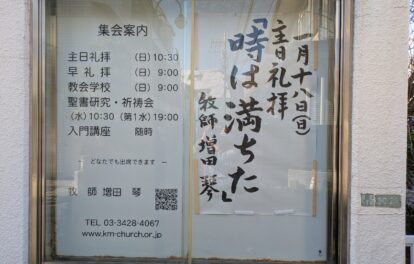 集会案内
主日礼拝 (日)10:30
早礼拝 (日) 9:00
教会学校 (日) 9:00
聖書研究・祈祷会
(水)10:30 (第1水)19:00
入門講座 随時
― どなたでも出席できます ―
牧師 増田 琴
TEL 03-3428-4067
www.km-church.or.jp
一月十八日(日)
主日礼拝
「時は満ちた」
牧師 増田 琴